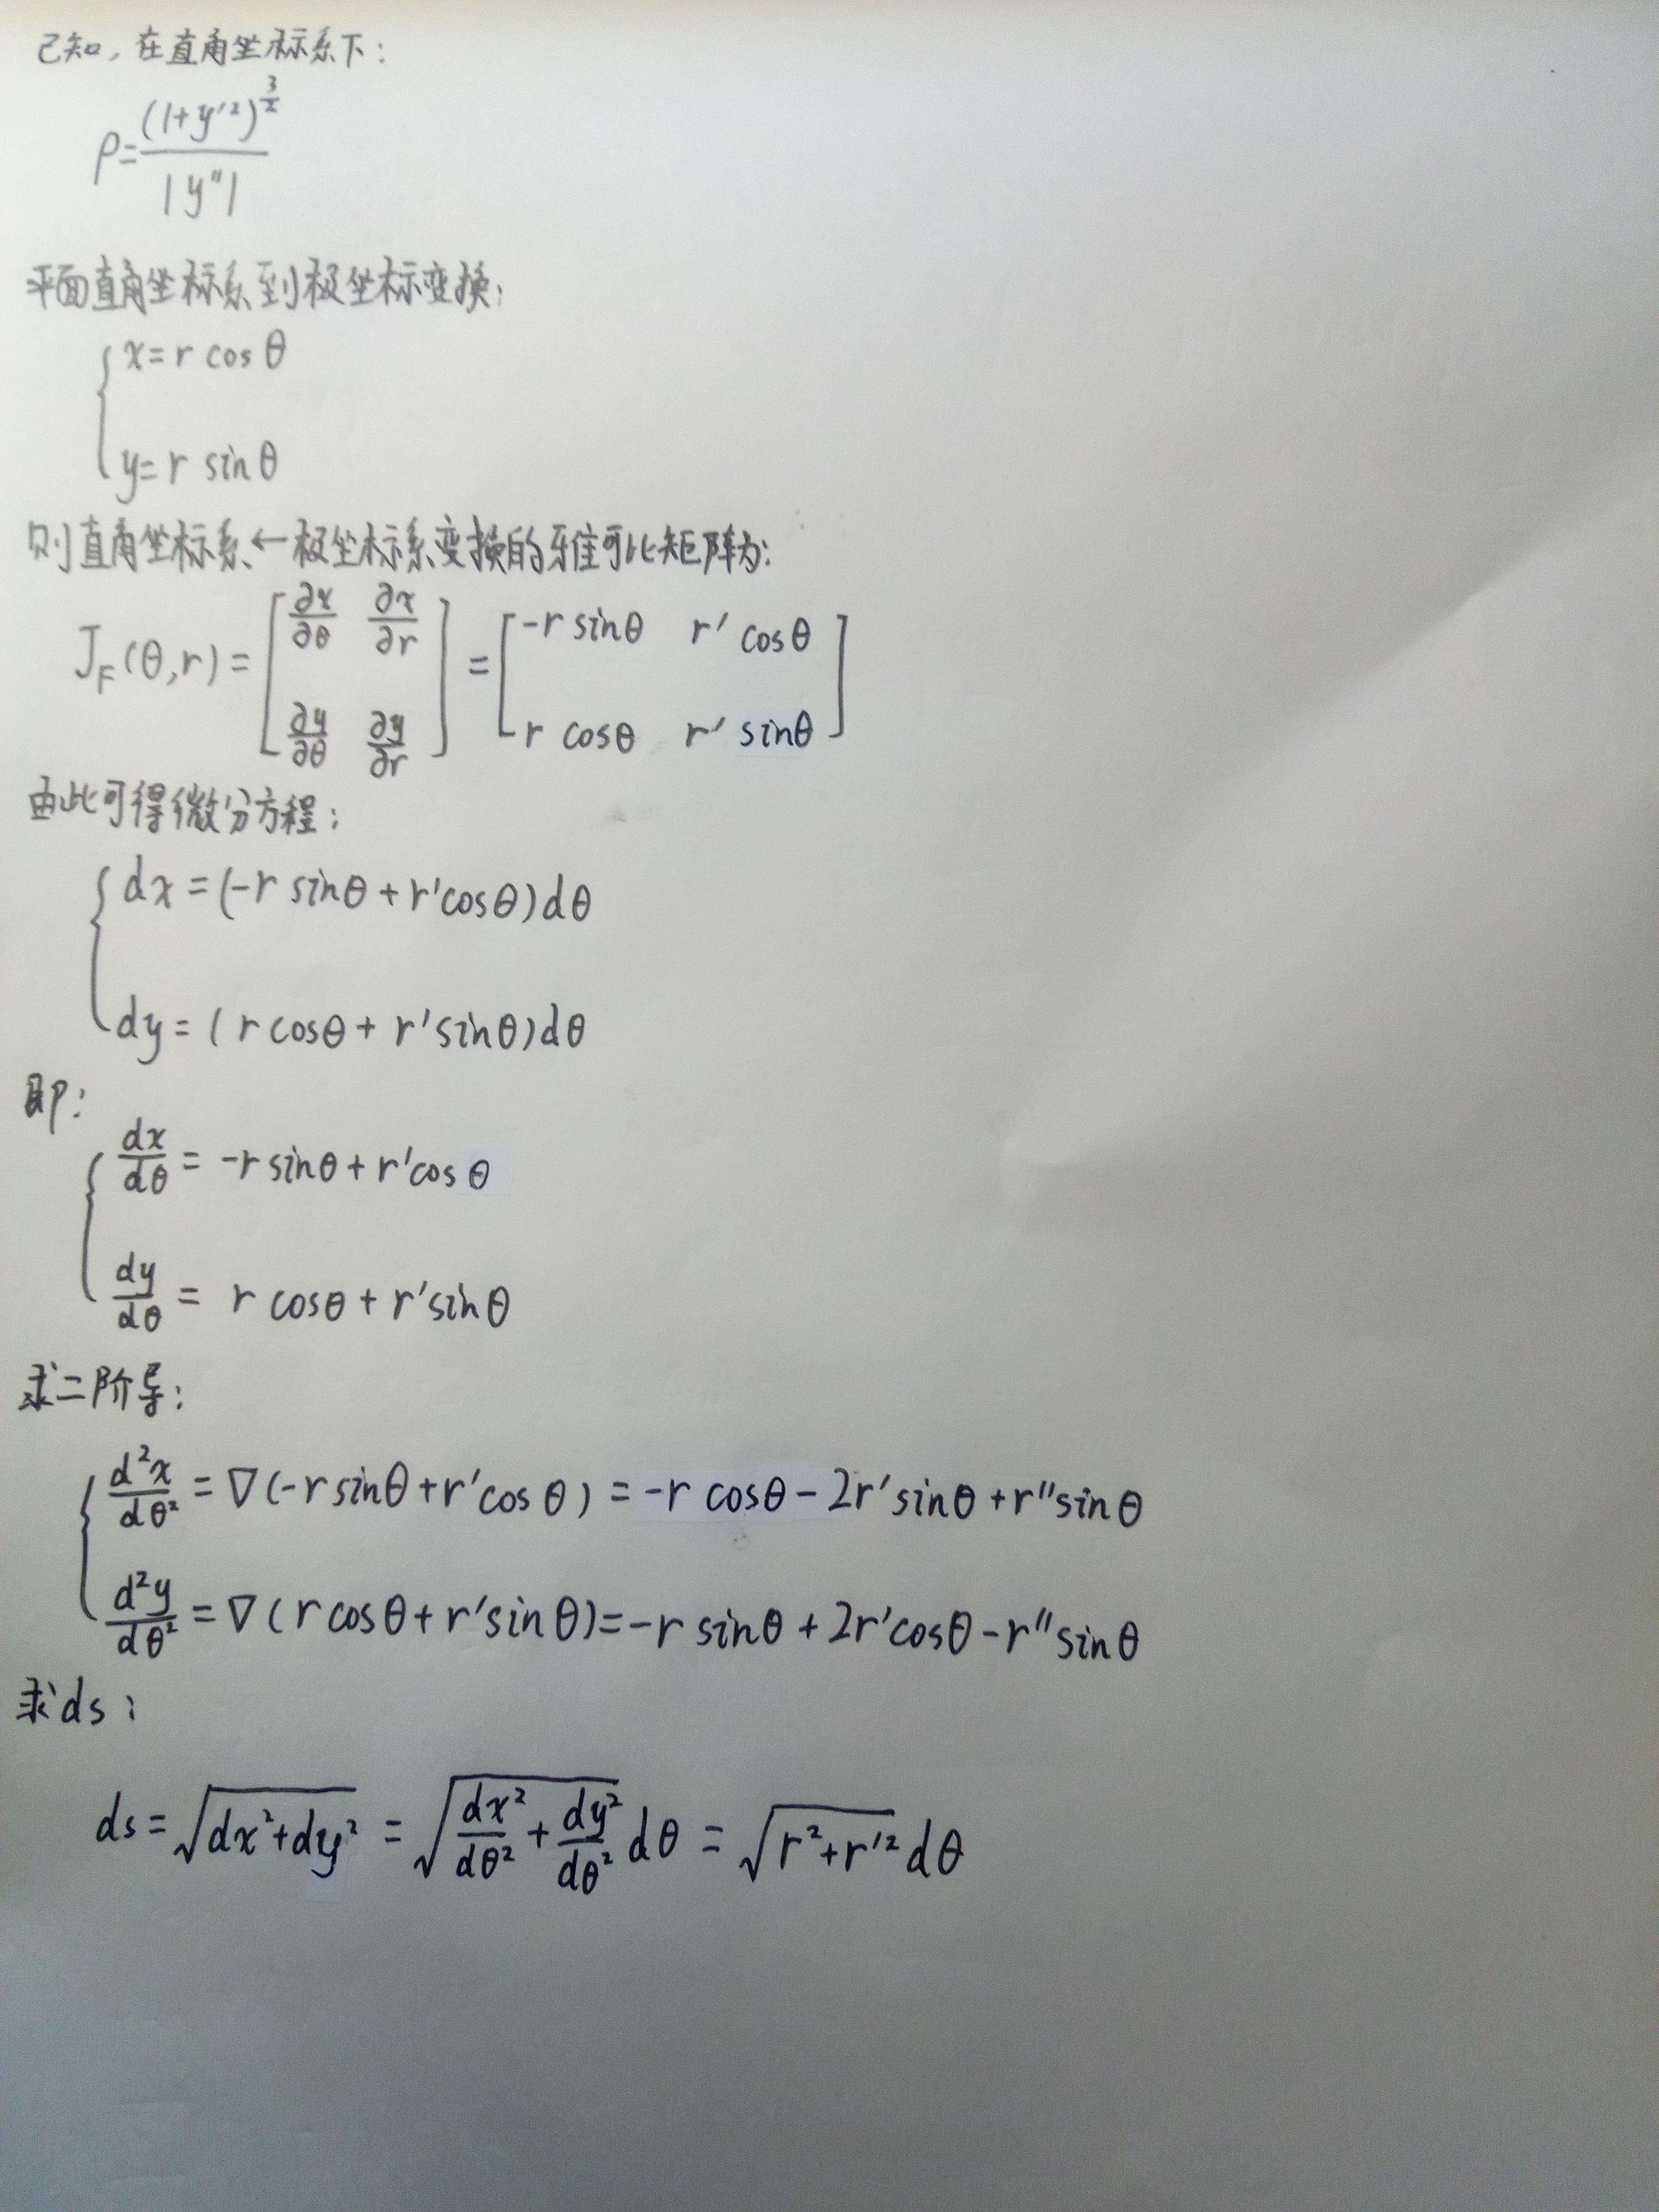 已知，在直角坐标系下：
ρ=(1+y′²)^(3/2)/|y″|
平面直角坐标系到极坐标变换：
{ x=r cosθ
y=r sinθ
则直角坐标系←极坐标系变换的雅可比矩阵为：
J_F(θ,r)=[∂x/∂θ ∂x/∂r; ∂y/∂θ ∂y/∂r]=[-r sinθ r′cosθ; r cosθ r′sinθ]
由此可得微分方程：
{ dx=(-r sinθ+r′cosθ)dθ
dy=(r cosθ+r′sinθ)dθ
即：
{ dx/dθ=-r sinθ+r′cosθ
dy/dθ=r cosθ+r′sinθ
求二阶导：
{ d²x/dθ²=∇(-r sinθ+r′cosθ)=-r cosθ-2r′sinθ+r″sinθ
d²y/dθ²=∇(r cosθ+r′sinθ)=-r sinθ+2r′cosθ-r″sinθ
求ds：
ds=√(dx²+dy²)=√(dx²/dθ²+dy²/dθ²)dθ=√(r²+r′²)dθ